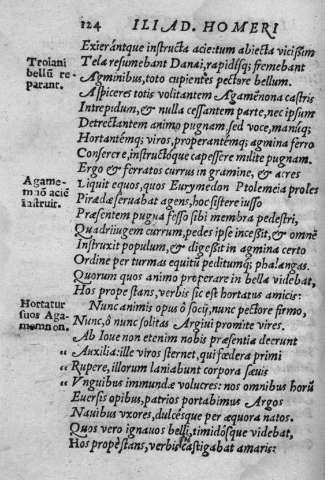 124 ILIAD. HOMERI
Exierántque instructa acie:tum abiecta vicissim
Troiani
bellū re-
parant.
Tela resumebant Danai, rapidisq; fremebant
Agminibus, toto cupientes pectore bellum.
Aspiceres totis volitantem Agamēnona castris
Intrepidum, & nulla cessantem parte, nec ipsum
Detrectantem animo pugnam, sed voce, manúq;
Hortantémq; viros, properantémq; agmina ferro
Conserere, instructóque capessere milite pugnam.
Ergo & ferratos currus in gramine, & acres
Agame-
mnō aciē
instruit.
Liquit equos, quos Eurymedon Ptolemeia proles
Piradæ seruabat agens, hoc sistere iusso
Præsentem pugna fosso sibi membra pedestri,
Quadriiugem currum, pedes ipse incessit, & omnē
Instruxit populum, & digessit in agmina certo
Ordine per turmas equitū peditumq; phalangas.
Quorum quos animo properare in bella videbat,
Hos prope stans, verbis sic est hortatus amicis:
Hortatur
suos Aga-
memnon.
Nunc animis opus ô socij, nunc pectore firmo,
Nunc, ô nunc solitas Argiui promite vires.
Ab Ioue non etenim nobis præsentia deerunt
“ Auxilia: ille viros sternet, qui fœdera primi
“ Rupere, illorum laniabunt corpora sæuis
“ Vnguibus immundæ volucres: nos omnibus horū
Euersis opibus, patrios portabimus Argos
Nauibus vxores, dulcésque per æquora natos.
Quos vero ignauos belli, timidósque videbat,
Hos propè stans, verbis castigabat amaris: